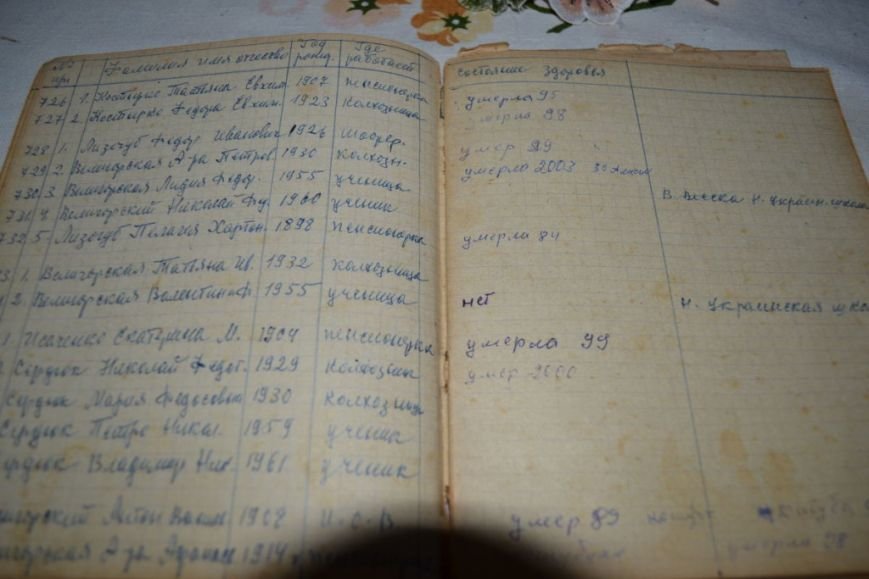 № Фамилия имя отчество Год рожд. Где работает состояние здоровья
726 1. Костырко Татьяна Евхим 1907 пенсионерка умерла 95
727 2 Костырко Федора Евхим. 1923 колхозница умерла 98
728 1. Лизогуб Федор Иванович 1926 шофер. умер 89
729 2. Велигорская Петров. 1930 колхозн. умерла 2003
730 3. Велигорская Лидия Федор. 1955 ученица
731 4. Велигорский Николай 1960 ученик В. Веска Н. украин. школа
732 5. Лизогуб Пелагия Харитон. 1898 пенсионерка умерла 84
3. 1. Велигорская Татьяна Ив. 1932 колхозница
4 2. Велигорская Валентина Ф. 1955 ученица нет Н. Украинская школа
1 Исаченко Екатерина М. 1904 пенсионерка умерла 99
Сердюк Николай Федот. 1929 колхозник умер 2000
Сердюк Мария Федосовна 1930 колхозница
Сердюк Петро Никол. 1959 ученик
Сердюк Владимир Ник. 1961 ученик
Антон 1908 умер 89
1914 умерла 98